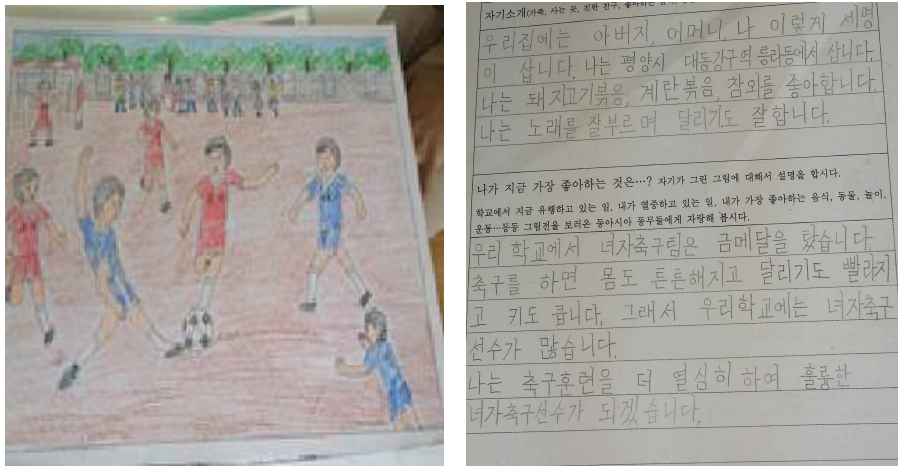 자기소개(가족, 사는 곳, 친한 친구, 좋아하는
우리집에는 아버지, 어머니, 나 이렇게 세명
이 삽니다. 나는 평양시 대동강구역 릉라동에서 삽니다.
나는 돼지고기볶음, 계란볶음, 참외를 좋아합니다.
나는 노래를 잘부르며 달리기도 잘합니다.
나가 지금 가장 좋아하는 것은…? 자기가 그린 그림에 대해서 설명을 합시다.
학교에서 지금 유행하고 있는 일, 내가 열중하고 있는 일, 내가 가장 좋아하는 음식, 동물, 놀이,
운동…등등 그림전을 보러온 동아시아 동무들에게 자랑해 봅시다.
우리 학교에서 녀자축구팀은 금메달을 탔습니다.
축구를 하면 몸도 튼튼해지고 달리기도 빨라지
고 키도 큽니다. 그래서 우리학교에는 녀자축구
선수가 많습니다.
나는 축구훈련을 더 열심히 하여 훌륭한
녀자축구선수가 되겠습니다.